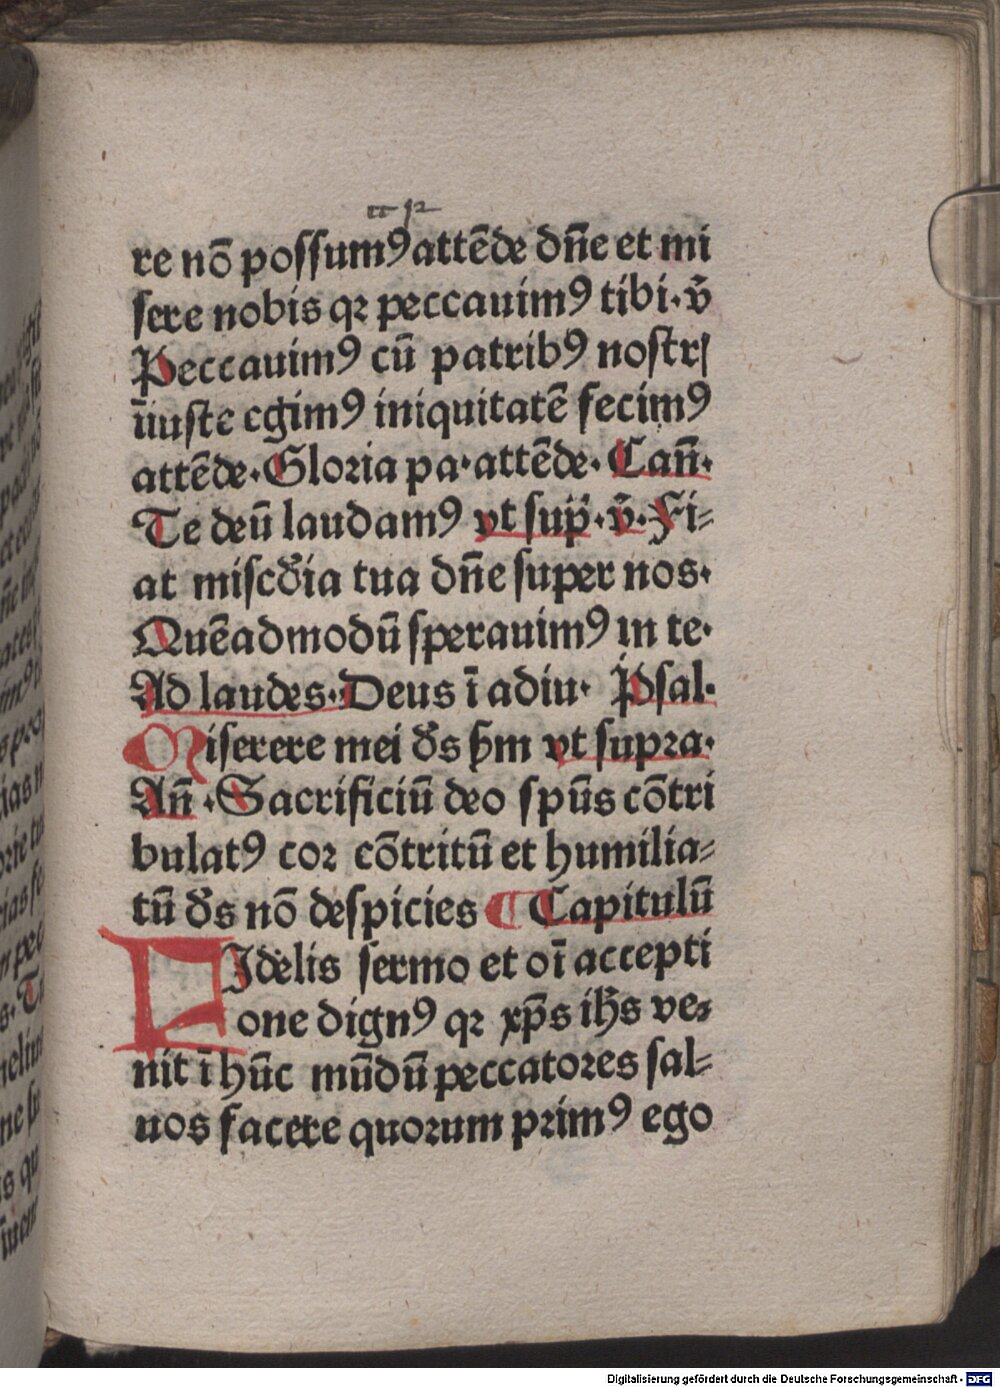 re nō possumꝰ attēde dn̄e et mi
sere nobis qꝛ peccauimꝰ tibi· v̄
Peccauimꝰ cū patribꝰ nostrꝭ
īiuste egimꝰ iniquitatē fecimꝰ
attēde· Gloria pa· attēde· Can̄·
Te deū laudamꝰ vt sup̄· v̄· Fi⸗
at misc̄dia tua dn̄e super nos·
Quēadmodū sperauimꝰ in te·
Ad laudes· Deus ī adiu· Psal·
Miserere mei ds̄ ẜm vt supra·
An̄ · Sacrificiū deo spūs cōtri
bulatꝰ cor cōtritū et humilia⸗
tū ds̄ nō despicies ¶ Capitulū
Fidelis sermo et oī accepti
one dignꝰ qꝛ xp̄s ih̄s ve⸗
nit ī hūc mūdū peccatores sal⸗
uos facere quorum primꝰ ego
Digitalisierung gefördert durch die Deutsche Forschungsgemeinschaft - DFG